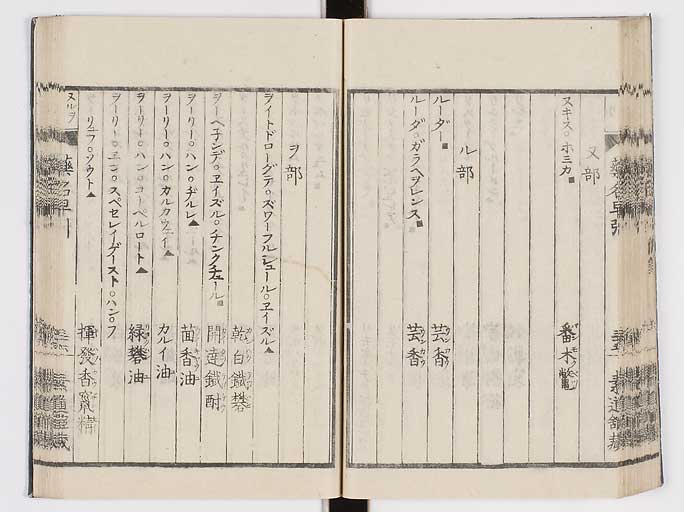 ヌ部
ヌキス○ホミカ 番木鼈
ル部
ルーダー 芸香
ルーダ○ガラヘヲレンス 芸香
ヲ部
ヲイトドローグデ○ズワーフルシュール○ヱイズル 乾白鐵礬
ヲーペチンデ○ヱイズル○チンクチュール 開達鐵酎
ヲーリー○ハン○ヂルレ 茴香油
ヲーリー○ハン○カルカウェイ カルイ油
ヲーリー○ハン○コーペルロート 緑礬油
ヲーリー○エン○スペセレイゲースト○ハン○フ
リユフ○ソウト 揮發香竄精
ヌルヲ